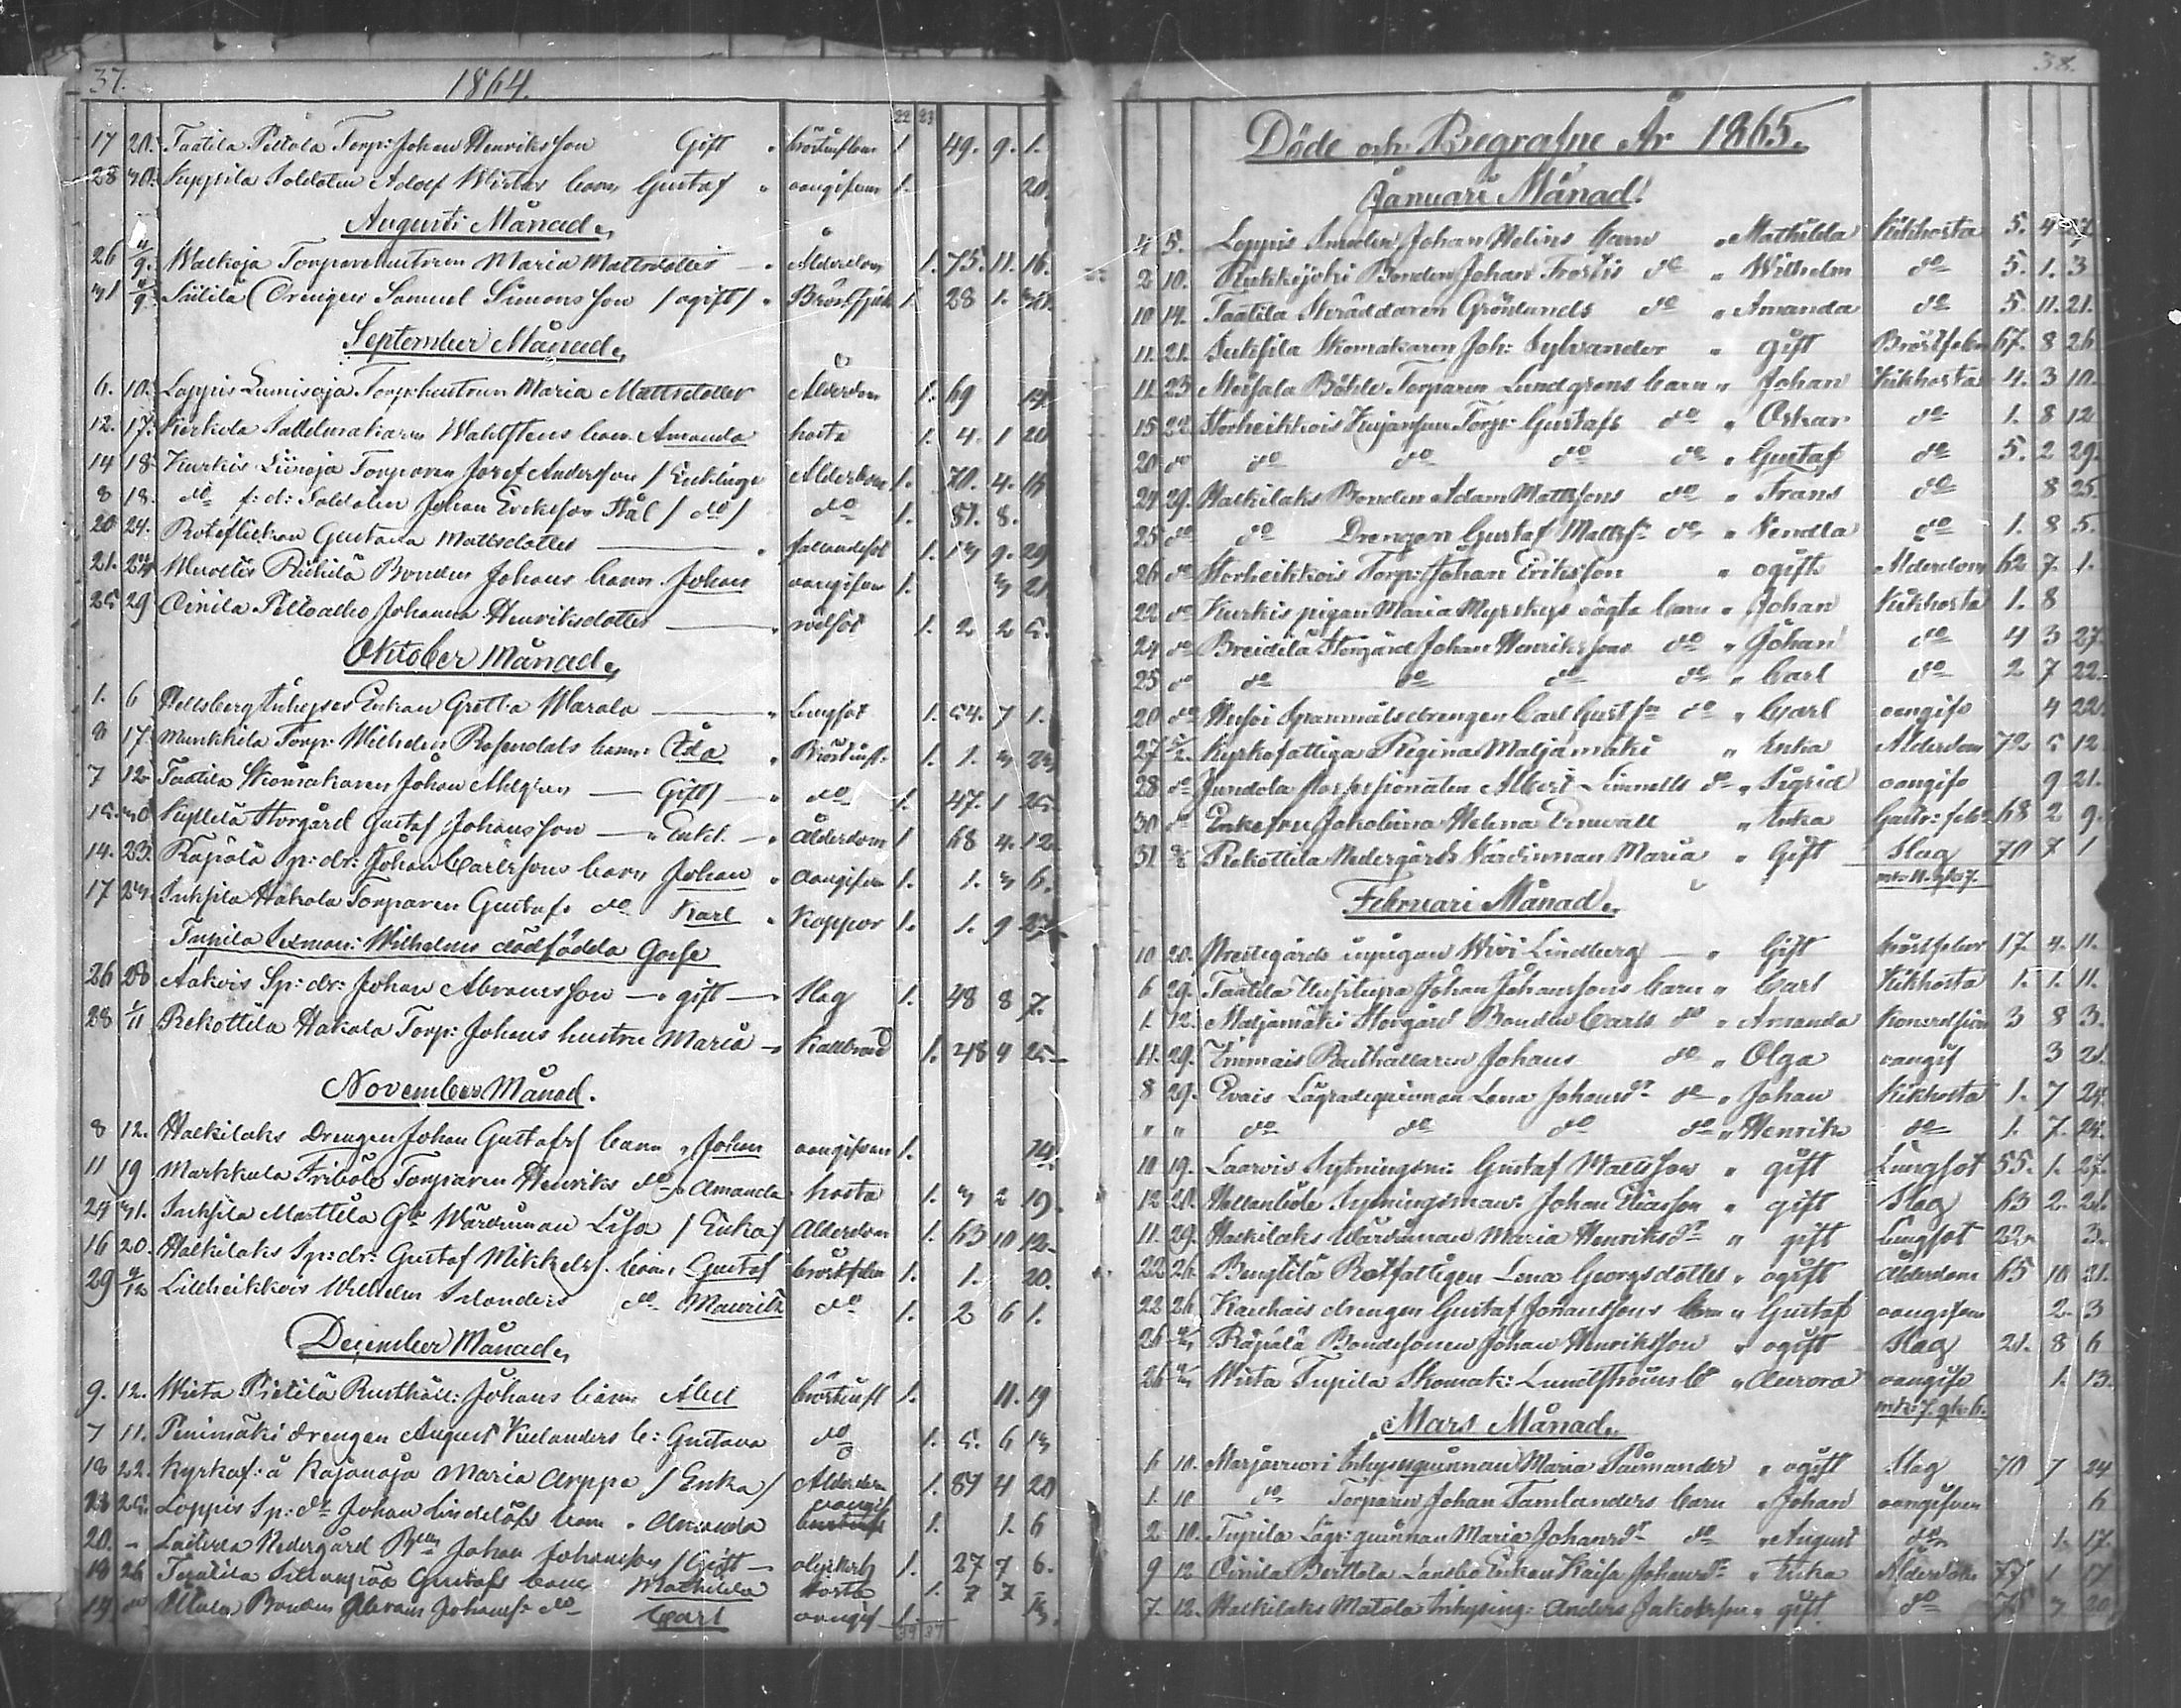 37.
1864.
22 23
17 20. Taatila Piltola Torp: Johan Henriksson Gift 1 49. 9. 1.
28 30. Suppila Soldaten Adolf Wirtas barn Gustaf " oangifven 1. 20.
Augusti Månad.
26 4/9. Walkoja Torparehustrun Maria Mattsdotter — Ålderdom 1. 75. 11. 16.
31 4/9. Siitilä Drengen Samuel Simonsson /ogift/ " 1. 28 1.
September Månad.
6. 10. Loppis Torp:hustrun Maria Mattsdotter Ålderdom 1. 69 14
12. 17. Kerkola Sadelmakaren Wahlstens barn Amanda hosta 1. 4. 1 20
14 18. Kurkis Liinoja Torparen Josef Andersson / Enkling Ålderdom 1. 70. 4. 15
8 18. do f: d: Soldaten Johan Eriksson Stål / do / do 1. 81. 8.
20 24. Roteflickan Gustava Mattsdotter — " fallandesot 1. 13 9. 29
21. 24 Riihilä Bonden Johans barn Johan oangifven 1. 3 21
25 29 Oinila Peltoalho Johanna Henriksdotter — " rödsot 1. 2 2 5.
Oktober Månad.
1. 6 Hellsberg Inhyses Enkan Gretha Warala — " Lungsot 1. 54. 7 1.
3 17. Munkkila Torp: Wilhelm Rosendals barn Ida " Bröstinfl: 1. 1. 3 23
7 12 Taatila Skomakaren Johan Ahlgren — Gift — " do 1. 47. 1 25
15. 30 Kyllilä Storgård Gustaf Johansson — " Enkl. — " Ålderdom 1 68 4. 12.
14. 23. Räpälä Sp: dr: Johan Carlssons barn Johan " oangifven 1. 1. 3 6.
17 23. Inkjila Hakala Torparen Gustafs do Karl " Koppor 1. 1. 9 27
Tupila Sexman: Wilhelms dödfödda Gosse
26 28 Aakois Sp: dr: Johan Abramsson — " gift — " Slag 1. 48 8 7.
28 1/11 Pekottila Hakala Torp: Johans hustru Maria — " Kallbrand 1. 48 4 25
November Månad.
8 12. Halkilaks Drengen Johan Gustafss barn " Johan oangifven 1. 14.
11 19 Markkula Friböle Torparen Henriks do " Amanda hosta 1. 3 2 19.
24 31. Inkjila Marttila Gd Wärdinnan Lisa / Enka / Ålderdom 1. 63 10 12
16 20. Halkilaks Sp: dr: Gustaf Mikkelss. barn Gustaf bröstfeber 1. 1. 20.
29 4/12 Lillheikkois Wilhelm Selanders do Mauritz do 1. 2 6 1.
December Månad.
9. 12. Wirta Pietilä Rusthåll: Johans barn Abel bröstinfl 1. 11. 19
7 11. Penimäki drengen August Kulanders b: Gustava do 1. 5. 6 13
18 22. Kyrkof: å Kojanoja Maria Arppe / Enka / Ålderdom 1. 84 4 20
23 25. Loppis Sp: dr Johan Lindelöfs barn " Amanda oangif 1. 1. 6
20. " Laiterla Nedergård Bdn Johan Johansson / Gift — 1. 27 7 6.
18 26 Gustafs barn Mathilda hosta 1. 7 7
19 do Uttula Bonden Abram Johanss: do Carl oangif 1. 13.
39 37
38.
Döde och Begrafne År 1865.
Januari Månad.
4 5. Loppis Smeden Johan Helins barn " Mathilda Kikhosta 5. 4 27.
2 10. Rukkijoki Bonden Johan Frostis do " Wilhelm do 5. 1. 3
10 14. Taatila Skräddaren Grönlunds do " Amanda do 5. 11. 21.
11. 21. Inkjila Skomakaren Joh: Sylvander " gift Bröstfeber 67. 8 26
11. 23 Böhle Torparen Lundgrens barn " Johan Kikhosta 4. 3 10.
15 22 Storheikkois Torp: Gustafs do " Oskar do 1. 8 12
20 do do do do do " Gustaf do 5. 2 29.
24 29. Halkilaks Bonden Adam Mattssons do " Frans do 8 25.
25 do do Drengen Gustaf Mattss: do " Vendla do 1. 8 5.
26 do Storheikkois Torp: Johan Eriksson " ogift Ålderdom 62 7. 1.
22 do Kurkis pigan Maria Myrskys oägta barn " Johan Kikhosta 1. 8
24 do Breidilä Storgård Johan Henrikssons do " Johan do 4 3 27
25 do do do do do " Carl do 2 7 22.
20 do Spannmålsdrengen Carl Gustfsn do " Carl oangifv 4 22
27 5/2. Kyrkofattiga Regina Maljamäki " Enka Ålderdom 72 5 12
28 do Jundola possessionaten Albert Linnells do " Sigrid oangifv 9 21.
30 do Enkefru Jakobina Helena " Enka Gastr: feb: 68 2 9.
31. 5/2 Pekottila Nedergårds Värdinnan Maria " Gift Slag 70 7 1
mk: 11. qk: 7.
Februari Månad.
10 20. Westegårds inpigan Wivi Lindberg — " Gift bröstfeber 17 4. 11.
6 29. Taatila Johan Johanssons barn " Carl Kikhosta 1. 1. 11.
1. 12. Maljamäki Storgård Bonden Carls do " Amanda Konvulsion 3 8 3.
11. 29. Emmais Rusthållaren Johans do " Olga oangif 3 21.
8 29. Evais Lägradeqvinnan Lena Johansdr do " Johan Kikhosta 1. 7 24.
" " do do do do " Henrik do 1. 7. 24.
10 19. Laarois Sytningsm: Gustaf Mattsson " gift Lungsot 55. 1. 27.
12 20. Hallenböle Sytningsman Johan Eliasson " gift Slag 63 2. 21.
11. 29. Halkilaks Wärdinnan Maria Henriksdr " gift Lungsot 22 3.
22 26. Bengtilä Rotfattigen Lena Georgsdotter " ogift Ålderdom 65 10 21.
22 26 Kauhais drengen Gustaf Johanssons barn " Gustaf oangifven 2. 3
26 Räpälä Bondesonen Johan Henriksson " ogift Slag 21. 8 6
26 Wirta Tupila Skomak: Lundströms b " Aurora oangifv 1. 13.
mk: 7. qk: 6.
Mars Månad.
6 10. Marjavuori Inhysesqvinnan Maria " ogift Slag 70 7 24
1. 10 do Torparen Johan Tamlanders barn " Johan oangifven 6
2 10. Tupila Lägr: qvinnan Maria Johansdr do " August do 1. 17.
9 12 Oinila Berttola Landbo Enkan Kaisa Johansdr " Enka Ålderdom 77 1 17
7. 12. Halkilaks Matola Inhysing: Anders Jakobsson " gift do 75 3 20